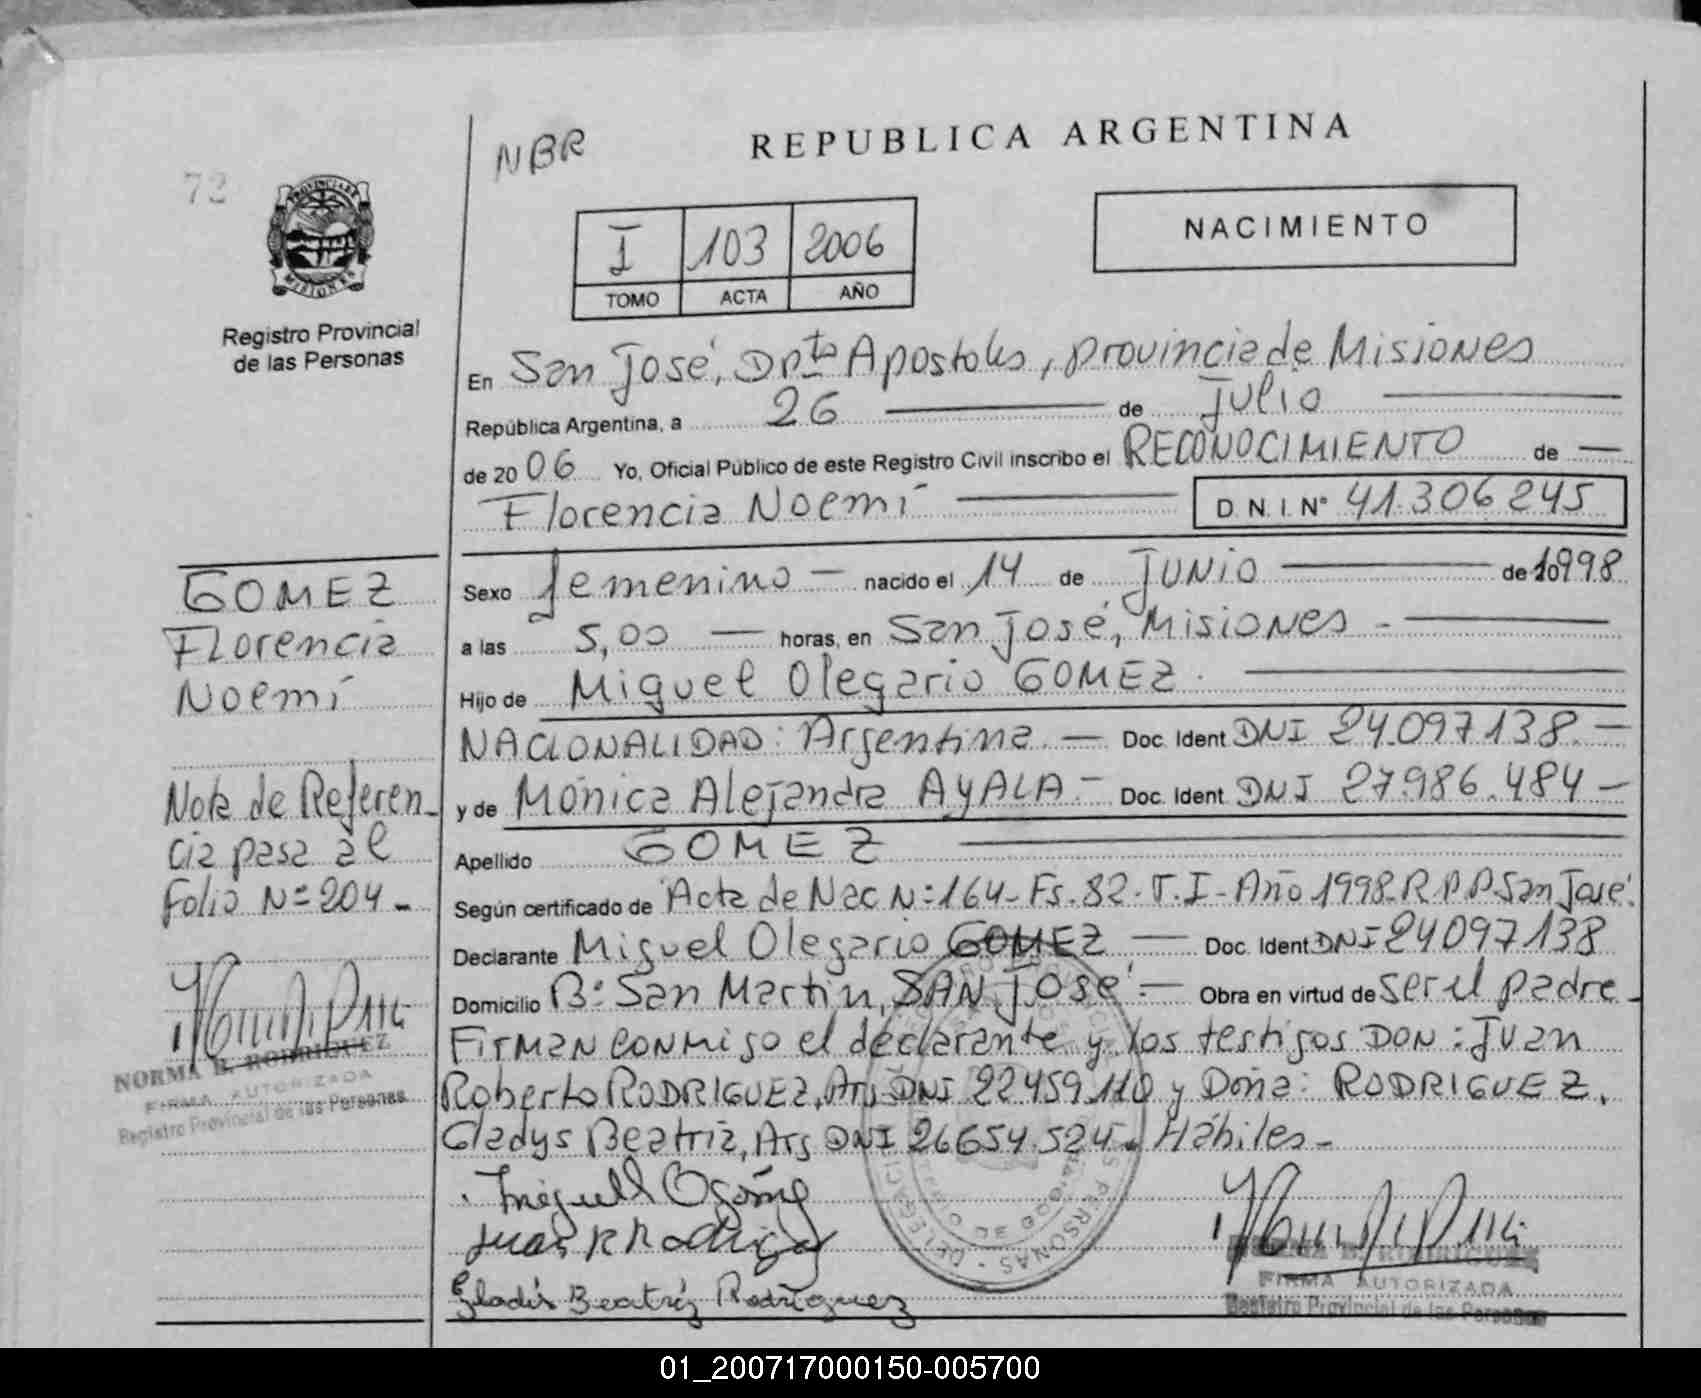 72
PROVINCIA DE
MISIONES
Registro Provincial
de las Personas
NBR
REPUBLICA ARGENTINA
I 103 2006
TOMO ACTA AÑO
NACIMIENTO
En San José, Dpto Apostoles, provincia de Misiones
República Argentina, a 26 de Julio
de 2006 Yo, Oficial Público de este Registro Civil inscribo el RECONOCIMIENTO de
Florencia Noemí D.N.I. N° 41.306.245
Sexo femenino nacido el 14 de JUNIO de 1998
a las 5,00 horas, en San José, Misiones
Hijo de Miguel Olegario GOMEZ.
NACIONALIDAD: Argentina Doc. Ident DNI 24.097.138
y de Mónica Alejandra AyALA Doc. Ident. DNI 27.986.484
Apellido GOMEZ
Según certificado de Acta de Nac N:164-Fs.82-T.I-Año 1998-R.P.P San José.
Declarante Miguel Olegario GOMEZ Doc. Ident. DNI 24097138
Domicilio B: San Martin, SAN José Obra en virtud de ser el padre
Firman conmigo el declarante y los testigos DON: Juan
Roberto RODRIGUEZ, Arg DNI 22459.110 y Doña: RODRIGUEZ,
Gladys Beatriz, Arg DNI 26654.524. Hábiles
Gladis Beatriz Rodriguez
FIRMA AUTORIZADA
Registro Provincial de las Personas
GOMEZ
Florencia
Noemí
Nota de Referen-
cia pasa al
Folio N=204
NORMA B. RODRIGUEZ
FIRMA AUTORIZADA
Registro Provincial de las Personas
01_200717000150-005700